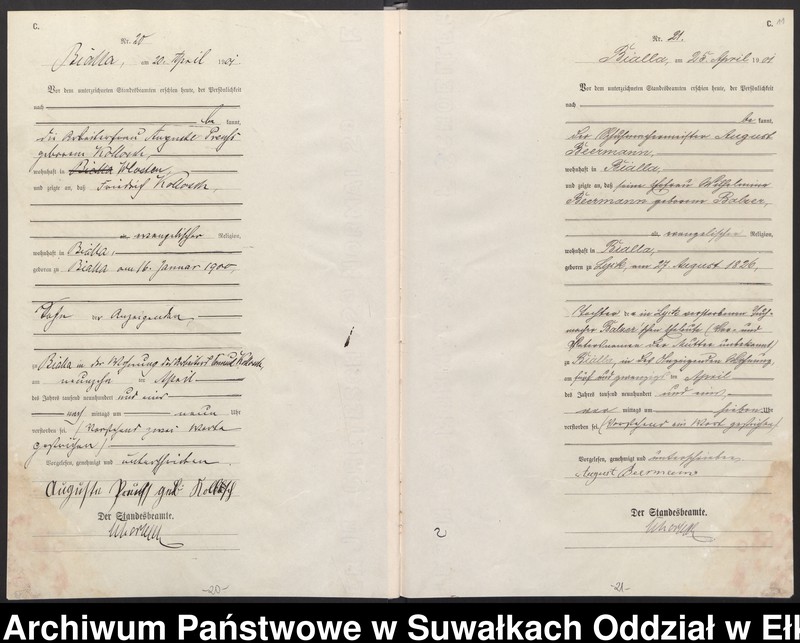 C.
Nr. 20
Bialla, am 20. April 1901.
Vor dem unterzeichneten Standesbeamten erschien heute, der Persönlichkeit
nach
be kannt,
die Arbeiterfrau Auguste
geborene Kollosch,
wohnhaft in Bialla
und zeigte an, daß Friedrich Kollosch,
evangelischer Religion,
wohnhaft in Bialla,
geboren zu Bialla am 16. Januar 1900,
Sohn der Anzeigenden
zu Bialla in der Wohnung des Arbeiters Kollosch,
am neunzehn ten April
des Jahres tausend neunhundert und eins
nach mittags um neun Uhr
verstorben sei. (Vorstehend zwei Worte
gestrichen)
Vorgelesen, genehmigt und unterschrieben
Auguste geb: Kollosch
Der Standesbeamte.
-20-
C.
Nr. 21.
Bialla, am 25. April 1901
Vor dem unterzeichneten Standesbeamten erschien heute, der Persönlichkeit
nach
be kannt,
der Schuhmachermeister August
Beermann,
wohnhaft in Bialla
und zeigte an, daß seine Ehefrau Wilhelmine
Beermann geborene Balzer,
evangelischer Religion,
wohnhaft in Bialla,
geboren zu Lyck, am 27 August 1826,
Tochter der in Lyck verstorbenen Tuch-
macher Balzer'schen Eheleute (Vor- und
Vatersnamen der Mutter unbekannt)
zu Bialla, in des Anzeigenden Wohnung
am fünf und zwanzigsten April
des Jahres tausend neunhundert und eins,
vor mittags um sieben Uhr
verstorben sei. (Vorstehend ein Wort gestrichen)
Vorgelesen, genehmigt und unterschrieben
August Beermann
Der Standesbeamte.
-21-
Archiwum Państwowe w Suwałkach Oddział w Eł